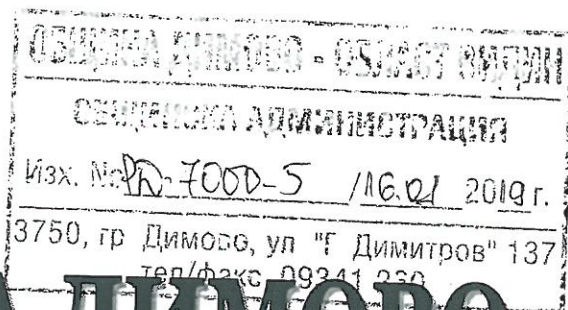 ОБЩИНА ДИМОВО - ОБЛАСТ ВИДИН
ОБЩИНСКА АДМИНИСТРАЦИЯ
Изх. № РД-7000-5 /16.01 2019 г.
3750, гр Димово, ул "Г Димитров" 137
тел/факс 09341 230
А ДИМОВО